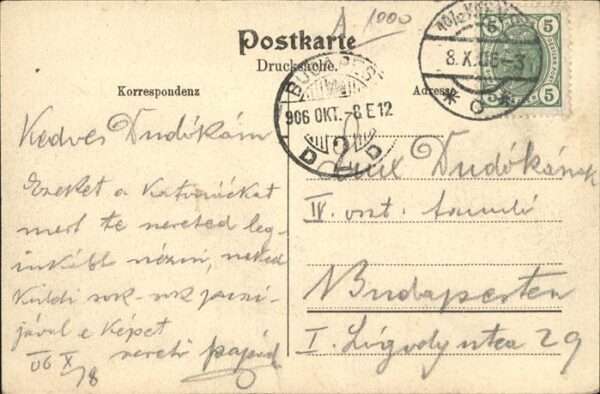 A 1000
Postkarte
Drucksache.
Korrespondenz
Adresse
8.X.06-3
5 5
5 5
BUDAPEST
906 OKT.-8 E 12
D 2 D
Kedves Dudókám
Ezeket a
mert te szereted leg-
inkább nézni, neked
küldi sok-sok
jával e képet
szerető papád
06 X/8
Lux Dudókának
IV. oszt. tanuló
Budapesten
I. Lógody utca 29